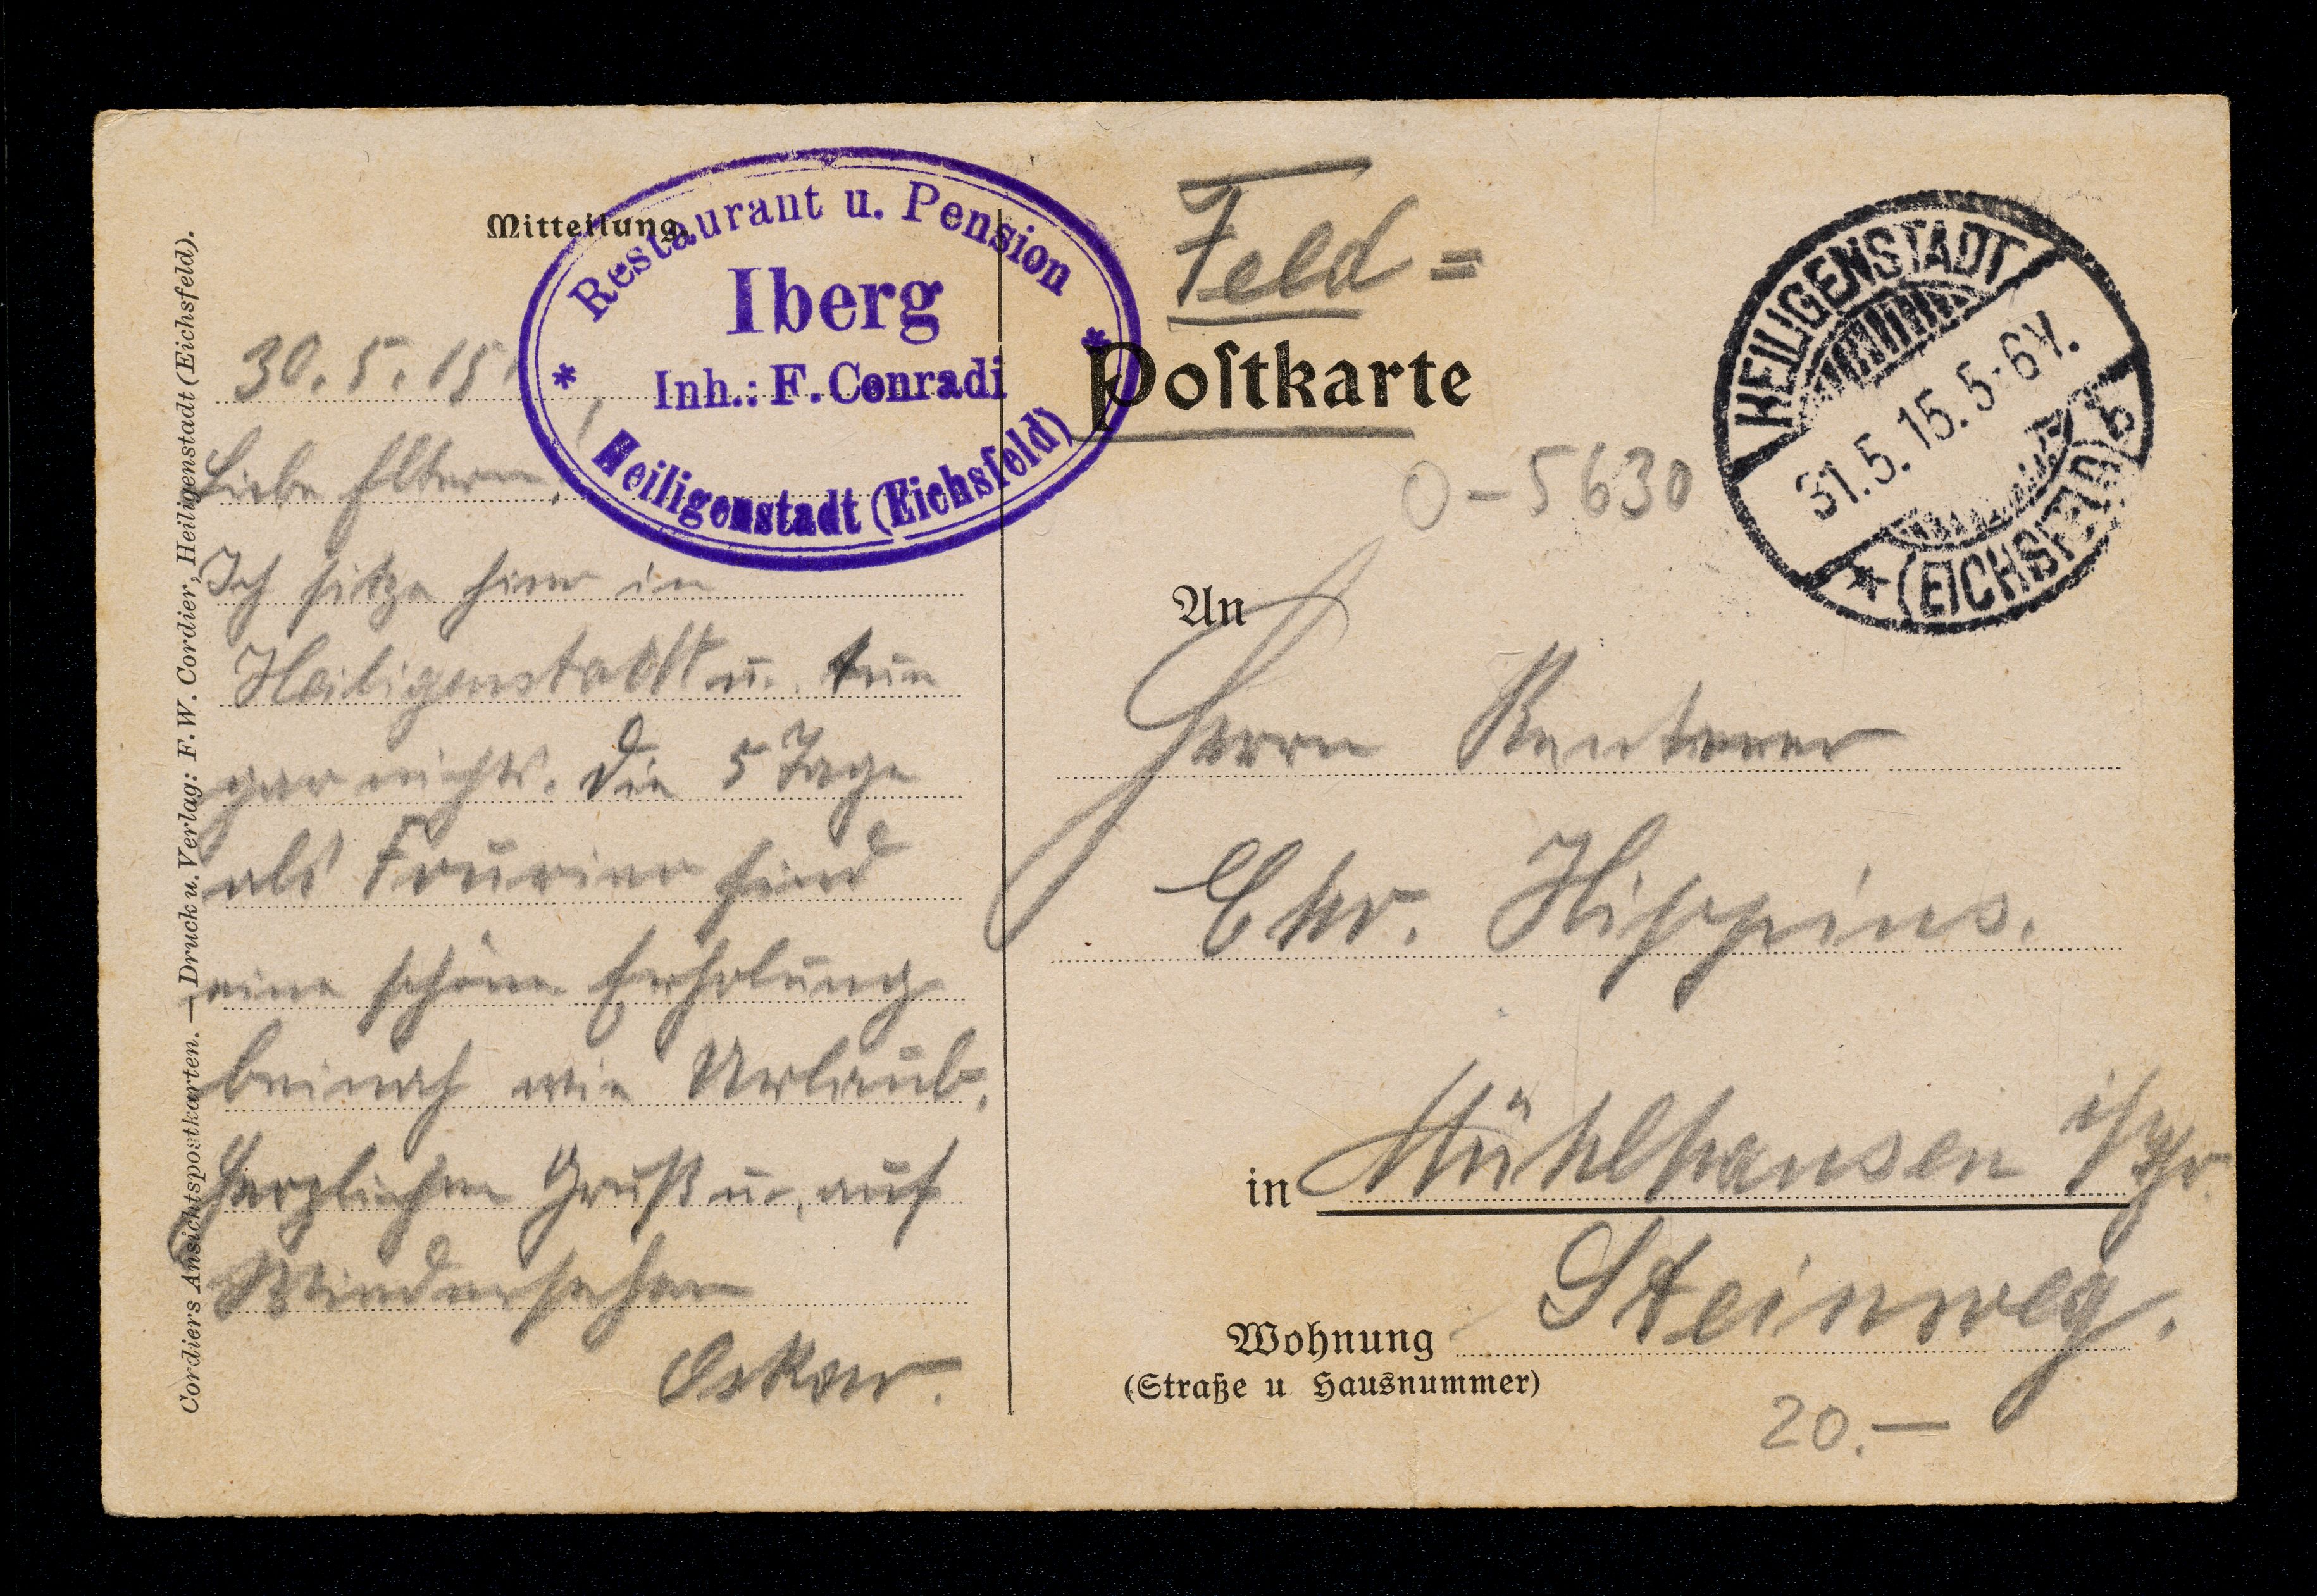 Cordiers Ansichtspostkarten. — Druck u. Verlag: F. W. Cordier, Heiligenstadt (Eichsfeld).
Mitteilung.
Restaurant u. Pension
Iberg
Inh.: F. Conradi
* Heiligenstadt (Eichsfeld) *
30.5.15
Liebe Eltern!
Ich sitze hier in
Heiligenstadt u. tue
gar nichts. Die 5 Tage
als Fourier sind
eine schöne Erholung
beinah wie Urlaub.
Herzlichen Gruß u. auf
Wiedersehen
Oskar.
Feld=
Postkarte
O-5630
HEILIGENSTADT
31.5.15.5-6V.
* (EICHSFELD) b
An
Herrn Rentner
Chr.
in Mühlhausen i/Thr.
Steinweg.
Wohnung
(Straße u Hausnummer)
20.—